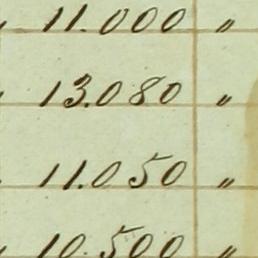 11.000 "
13.080 "
11.050 "
10.500 "